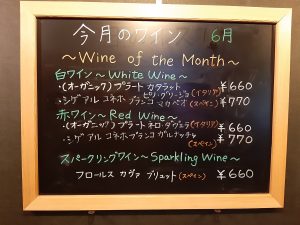 今月のワイン 6月
～Wine of the Month～
白ワイン～White Wine～
・(オーガニック)プラート カタラット
ピノ・グリージョ(イタリア) ¥660
・シグアル コネホ ブランコ マカベオ(スペイン) ¥770
赤ワイン～Red Wine～
・(オーガニック)プラート ネロ・ダヴォラ(イタリア) ¥660
・シグアル コネホ ブランコ ガルナッチャ
(スペイン) ¥770
スパークリングワイン～Sparkling Wine～
フロールス カヴァ ブリュット(スペイン) ¥660